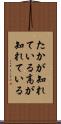 たかが知れ
ている高が
知れている